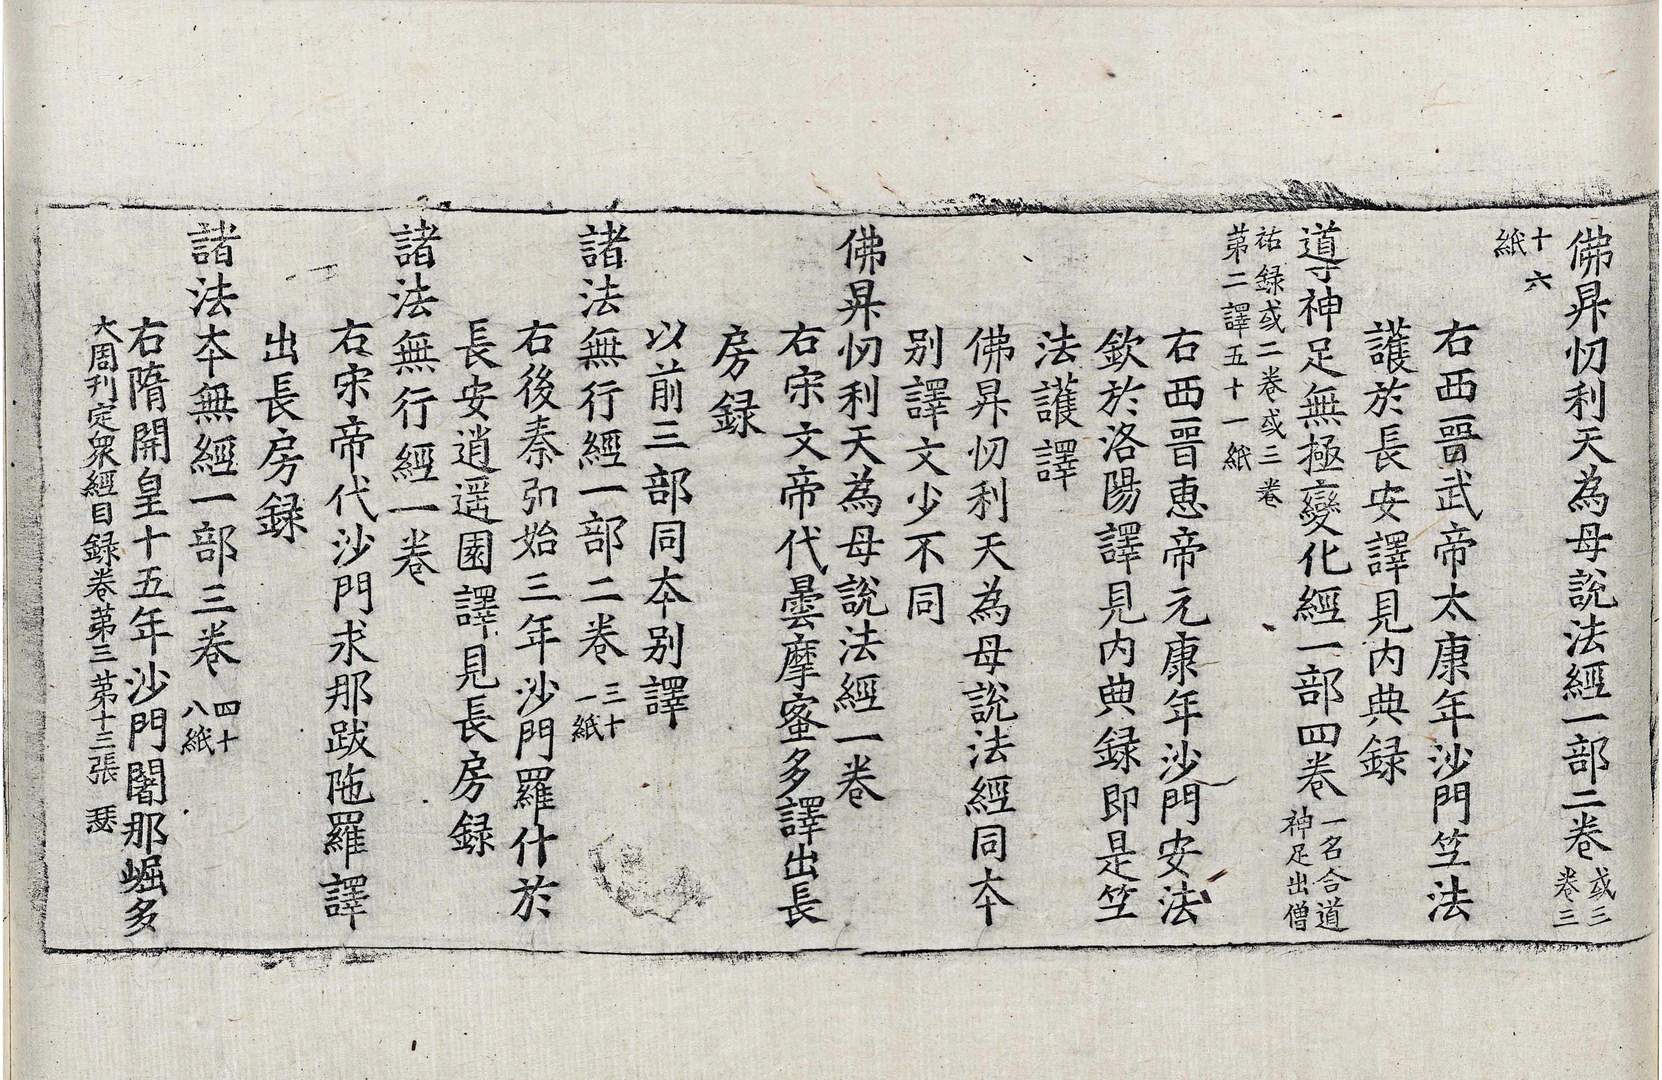 佛昇忉利天為母說法經一部二卷或三卷三
十六紙
右西晉武帝太康年沙門竺法
護於長安譯見内典録
導神足無極變化經一部四卷一名合道神足出僧
祐録或二卷或三卷第二譯五十一紙
右西晉惠帝元康年沙門安法
欽於洛陽譯見内典録即是竺
法護譯
佛昇忉利天為母說法經同本
別譯文少不同
佛昇忉利天為母說法經一卷
右宋文帝代曇摩蜜多譯出長
房録
以前三部同本別譯
諸法無行經一部二卷三十一紙
右後秦弘始三年沙門羅什於
長安逍遥園譯見長房録
諸法無行經一卷
右宋帝代沙門求那跋陁羅譯
出長房録
諸法本無經一部三卷四十八紙
右隋開皇十五年沙門闍那崛多
大周刊定衆經目録卷第三 第十三張 瑟